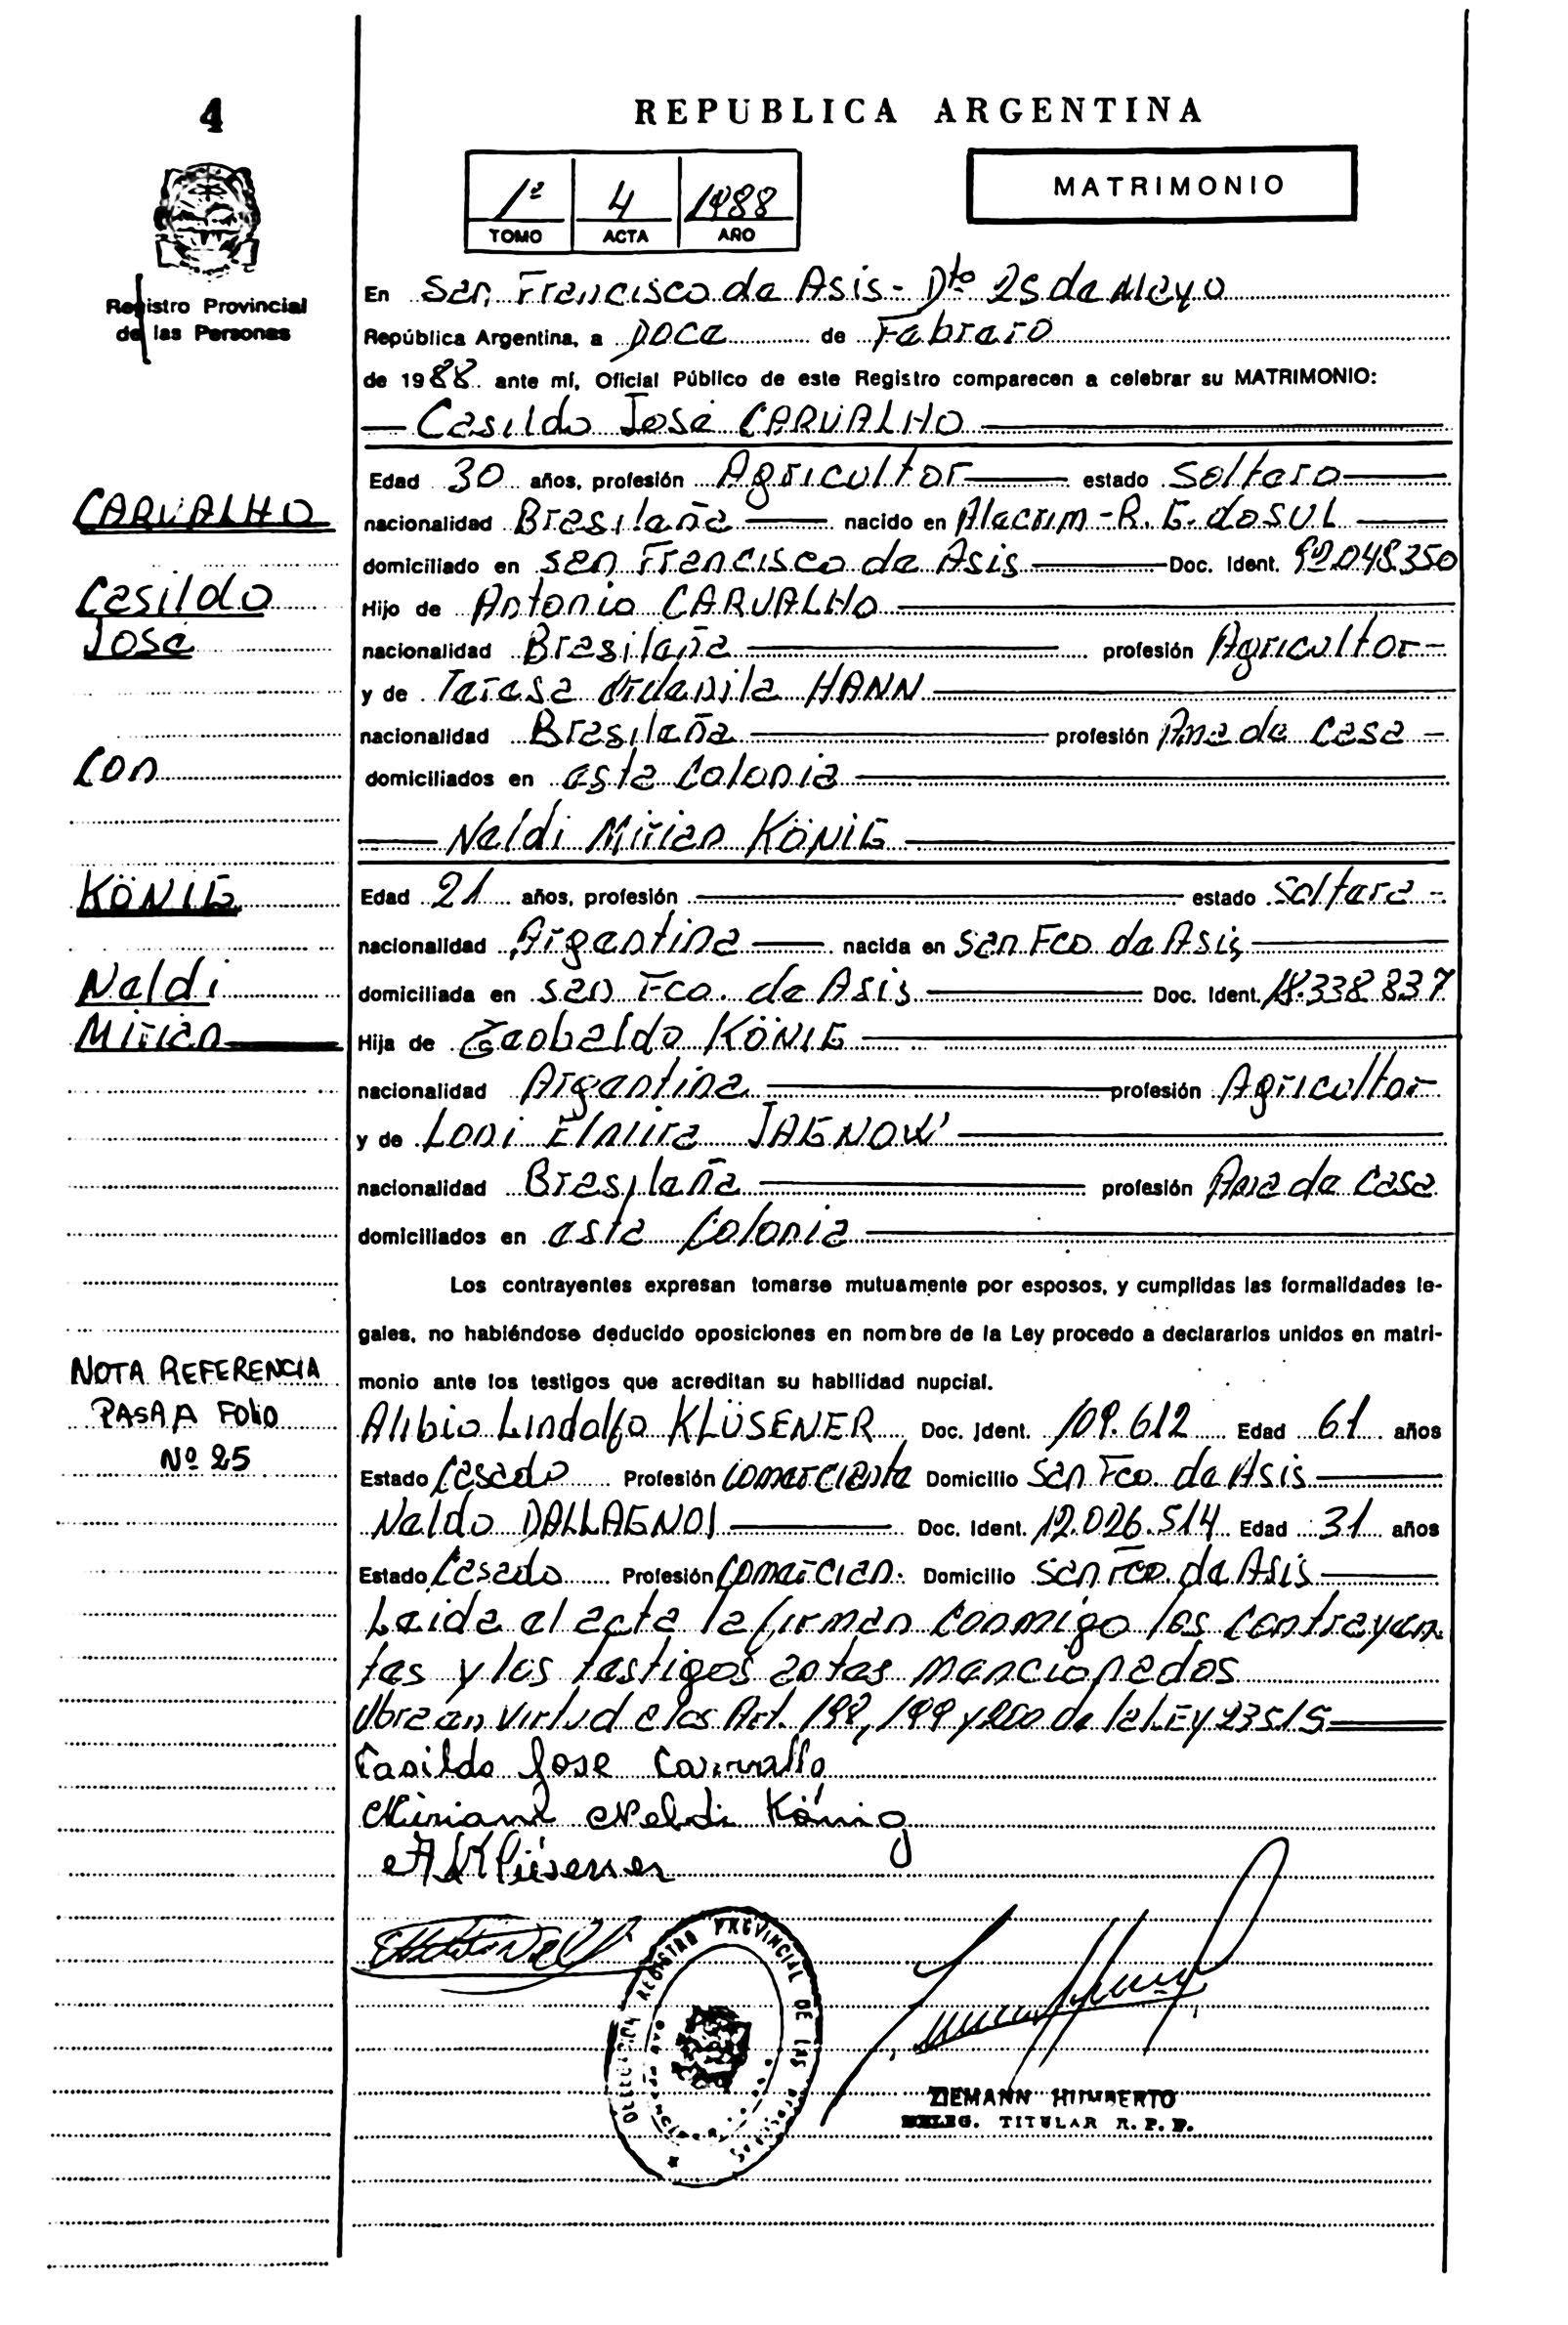 4
REPUBLICA ARGENTINA
MATRIMONIO
1º 4 1988
TOMO ACTA AÑO
Registro Provincial
de las Personas
En San Francisco de Asis - Dto 25 de Mayo
República Argentina, a Doce de Febrero
de 1988 ante mí, Oficial Público de este Registro comparecen a celebrar su MATRIMONIO:
Casildo José CARVALHO
Edad 30 años, profesión Agricultor estado Soltero
CARVALHO
nacionalidad Brasileña nacido en Alecrim - R. G. do SUL
domiciliado en San Francisco de Asis Doc. Ident. 92.048.350
Casildo
Hijo de Antonio CARVALHO
José
nacionalidad Brasileña profesión Agricultor
y de Teresa HANN
nacionalidad Brasileña profesión Ama de Casa
Con
domiciliados en esta Colonia
Neldi Mirian KÖNIG
KÖNIG
Edad 21 años, profesión estado Soltera
nacionalidad Argentina nacida en San Fco de Asis
Neldi
domiciliada en San Fco. de Asis Doc. Ident. 18.338.837
Mirian
Hija de KÖNIG
nacionalidad Argentina profesión Agricultor
y de Loni Elmira JAGNOW
nacionalidad Brasileña profesión Ama de Casa
domiciliados en esta Colonia
Los contrayentes expresan tomarse mutuamente por esposos, y cumplidas las formalidades le-
gales, no habiéndose deducido oposiciones en nombre de la Ley procedo a declararlos unidos en matri-
monio ante los testigos que acreditan su habilidad nupcial.
NOTA REFERENCIA
PASA A FOLIO
Nº 25
Alibio Lindolfo KLÜSENER Doc. Ident. 109.612 Edad 61 años
Estado Casado Profesión Comerciante Domicilio San Fco. de Asis
Neldo DALLAGNOL Doc. Ident. 12.026.514 Edad 31 años
Estado Casado Profesión Comercian. Domicilio San Fco. de Asis
Leida el acta la firman conmigo los contrayen.
tes y los testigos antes mencionados
Obra en virtud e los Art. 198, 199 y 200 de la LEY 23515
Casildo Jose Carvalho
Miriam Neldi König
A L Klüsener
DELEGACION REGISTRO PROVINCIAL DE LAS PERSONAS
ZIEMANN HUMBERTO
DELEG. TITULAR R. P. P.